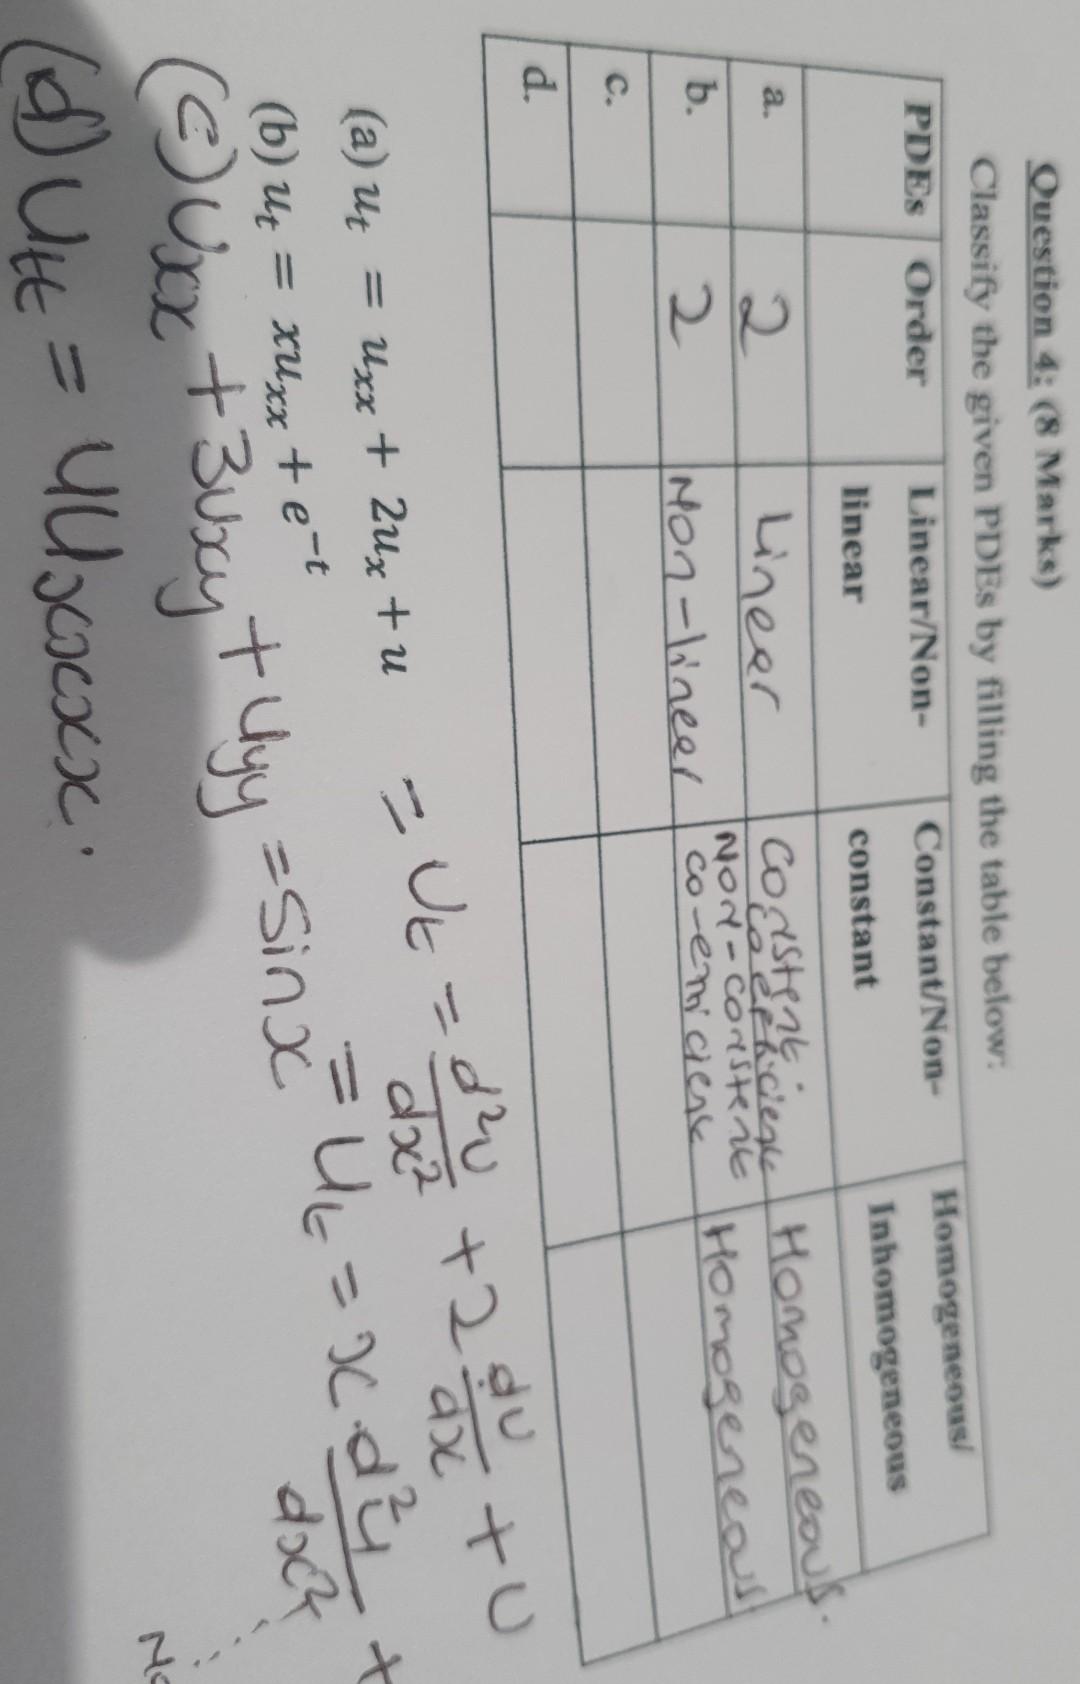 Question 4: (8 Marks)
Classify the given PDEs by filling the table below:
PDEs Order Linear/Non-linear Constant/Non-constant Homogeneous/Inhomogeneous
a. 2 Linear Constent. coefficient Homogeneous.
b. 2 Non-linear Non-constent co-emicient Homogeneous.
c.
d.
(a) uₜ = uₓₓ + 2uₓ + u = Uₜ = d²u/dx² + 2 du/dx + u
(b) uₜ = xuₓₓ + e⁻ᵗ = Uₜ = x . d²u/dx² +
(c) Uxx + 3Uxy + Uyy = Sin x
(d) Utt = UUxxxx.